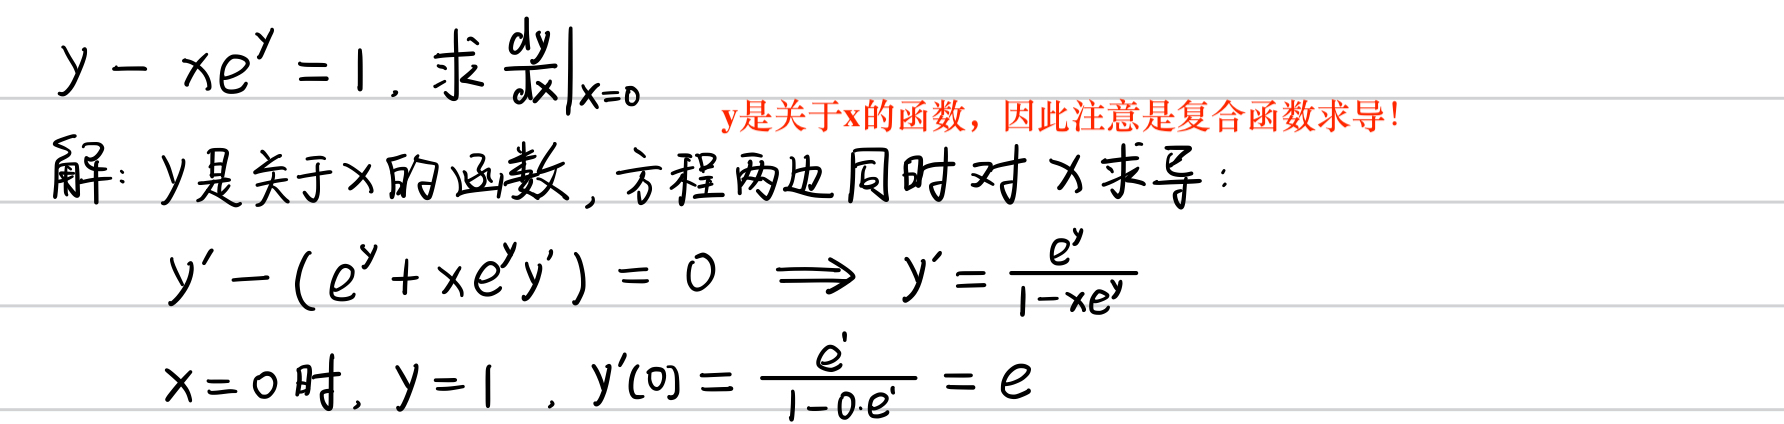 y - xe^y = 1. 求 dy/dx|x=0
y是关于x的函数，因此注意是复合函数求导！
解: y是关于x的函数, 方程两边同时对x求导:
y' - (e^y + xe^y y') = 0 ⟹ y' = e^y/(1-xe^y)
x=0时, y=1, y'(0) = e^1/(1-0·e^1) = e